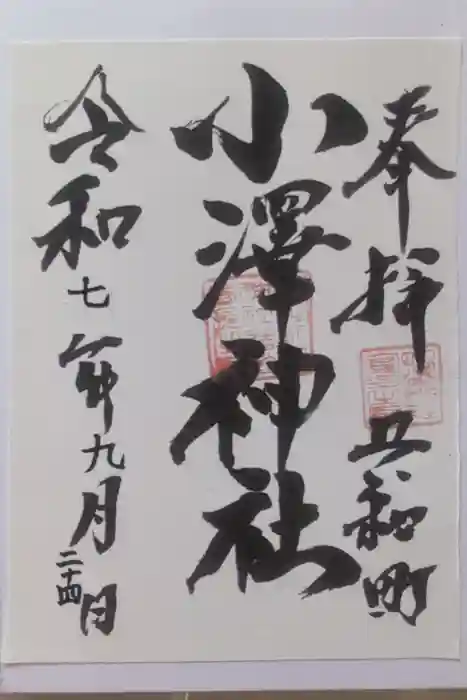 奉拝
和町
小澤神社
令和七年九月二十四日